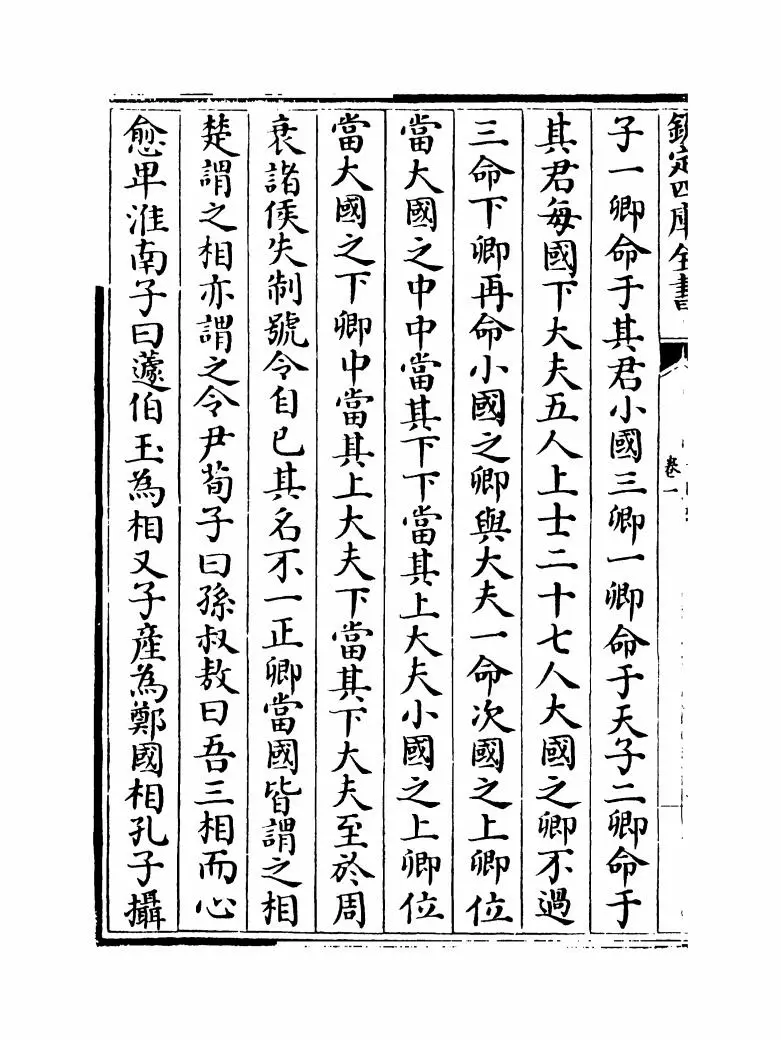 欽定四庫全書
卷一
子一卿命于其君小國三卿一卿命于天子二卿命于
其君每國下大夫五人上士二十七人大國之卿不過
三命下卿再命小國之卿與大夫一命次國之上卿位
當大國之中中當其下下當其上大夫小國之上卿位
當大國之下卿中當其上大夫下當其下大夫至於周
衰諸侯失制號令自己其名不一正卿當國皆謂之相
楚謂之相亦謂之令尹荀子曰孫叔敖曰吾三相而心
愈卑淮南子曰蘧伯玉為相又子産為鄭國相孔子攝